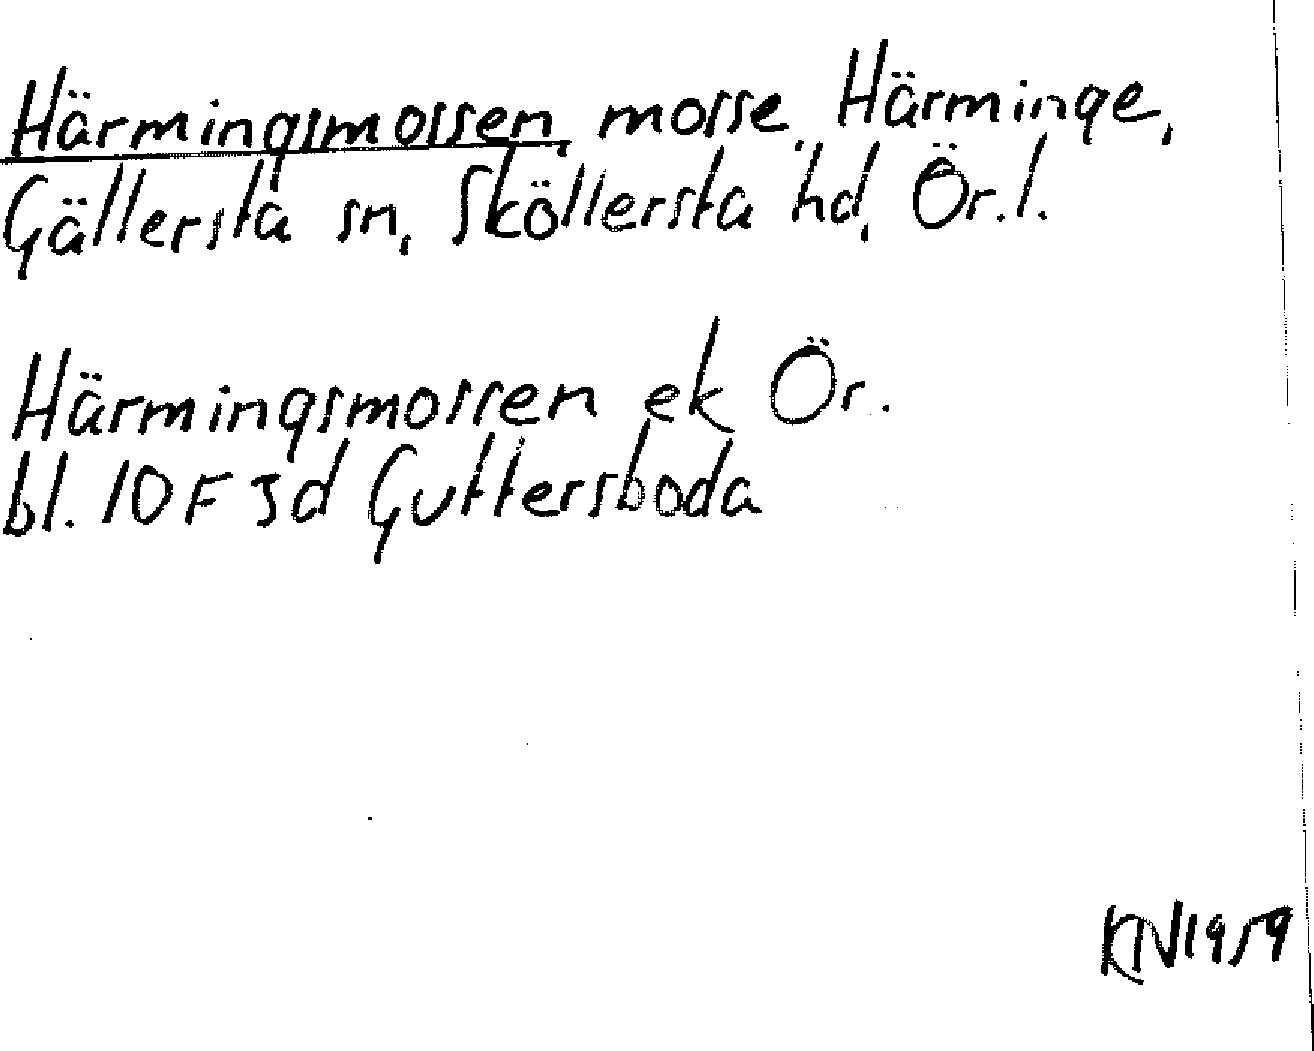 Härmingsmossen, mosse, Härminge,
Gällersta sn, Sköllersta hd, Ör. l.
Härmingsmossen ek Ör.
bl. 10F 3d Guttersboda
KN 1959